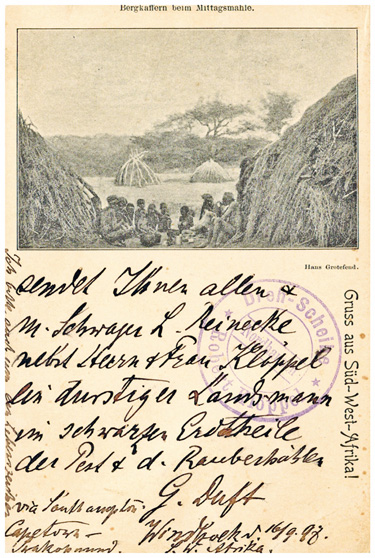 Bergkaffern beim Mittagsmahle.
Hans Grotefend.
Gruss aus Süd-West-Afrika!
Dreh-Scheibe
sendet Ihnen allen &
m. Schwager L. Reinecke
nebst Herrn & Frau Klöppel
ein durstiger Landsmann
im schwarzen Erdtheile
der Pest & d.
G. Duft
via Southampton
Capetown
Swakopmund.
Windhoek d. 16/9.97.
S.W. Afrika.